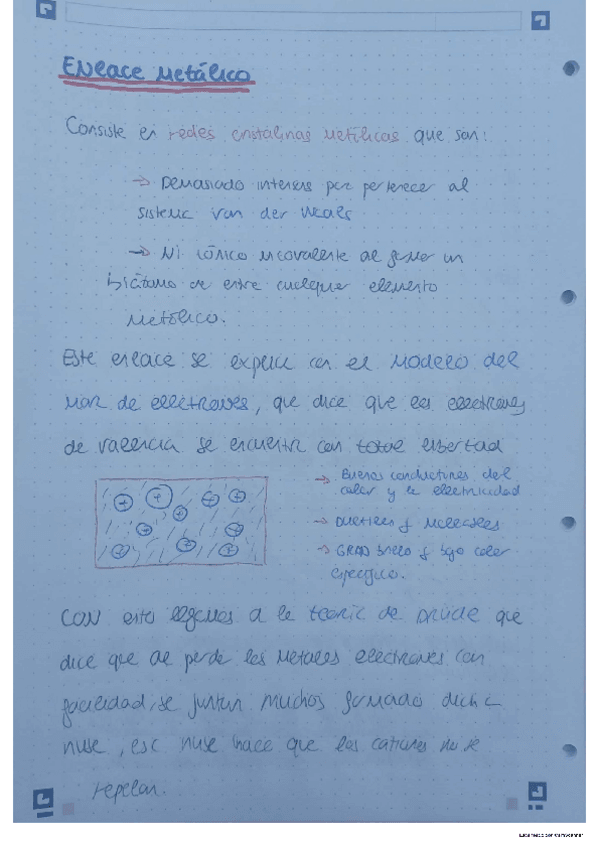 Enlace Metálico
Consiste en redes cristalinas metálicas que son:
→ Demasiado intensas para pertenecer al
sistema van der Waals
→ Ni iónico ni covalente al
entre cualquier elemento
metálico.
Este enlace se explica con el modelo del
mar de electrones, que dice que los electrones
de valencia se encuentran con total libertad
→ Buenos conductores del
calor y la electricidad
+ + + + +
+ +
+ + +
→ Ductiles y maleables
→ GRAN brillo y bajo calor
especifico.
CON esto llegamos a la teoría de Drude que
dice que al perder los metales electrones con
facilidad, se juntan muchos formando dicha
nube, esa nube hace que los cationes no se
repelan.